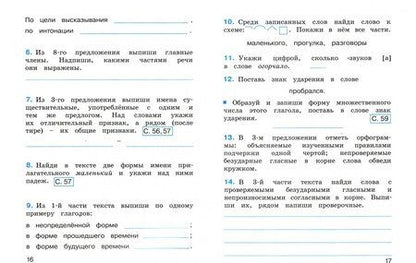 По цели высказывания
по интонации
6. Из 8-го предложения выпиши главные
члены. Надпиши, какими частями речи
они выражены.
7. Из 3-го предложения выпиши имена су-
ществительные, употреблённые с одним и
тем же предлогом. Над словами укажи
их отличительный признак, а рядом (после
тире) – их общие признаки. С. 56,57
8. Найди в тексте две формы имени при-
лагательного маленький и укажи над ними
падеж. С. 57
9. Из 1-й части текста выпиши по одному
примеру глаголов:
в неопределённой форме
в форме прошедшего времени
в форме будущего времени
16
10. Среди записанных слов найди слово к
схеме: . Покажи в нём все части.
маленького, прогулка, разговоры
11. Укажи цифрой, сколько звуков [а]
в слове огорчало.
12. Поставь знак ударения в слове
пробрался.
Образуй и запиши форму множественного
числа этого глагола, поставь в слове знак
ударения. С. 59
13. В 3-м предложении отметь орфограм-
мы: объясняемые изученными правилами
подчерки одной чертой; непроверяемые
безударные гласные в корне слова обведи
кружком.
14. В 3-й части текста найди слова с
проверяемыми безударными гласными и
непроизносимыми согласными в корне. Выпи-
ши их, рядом напиши проверочные.
17